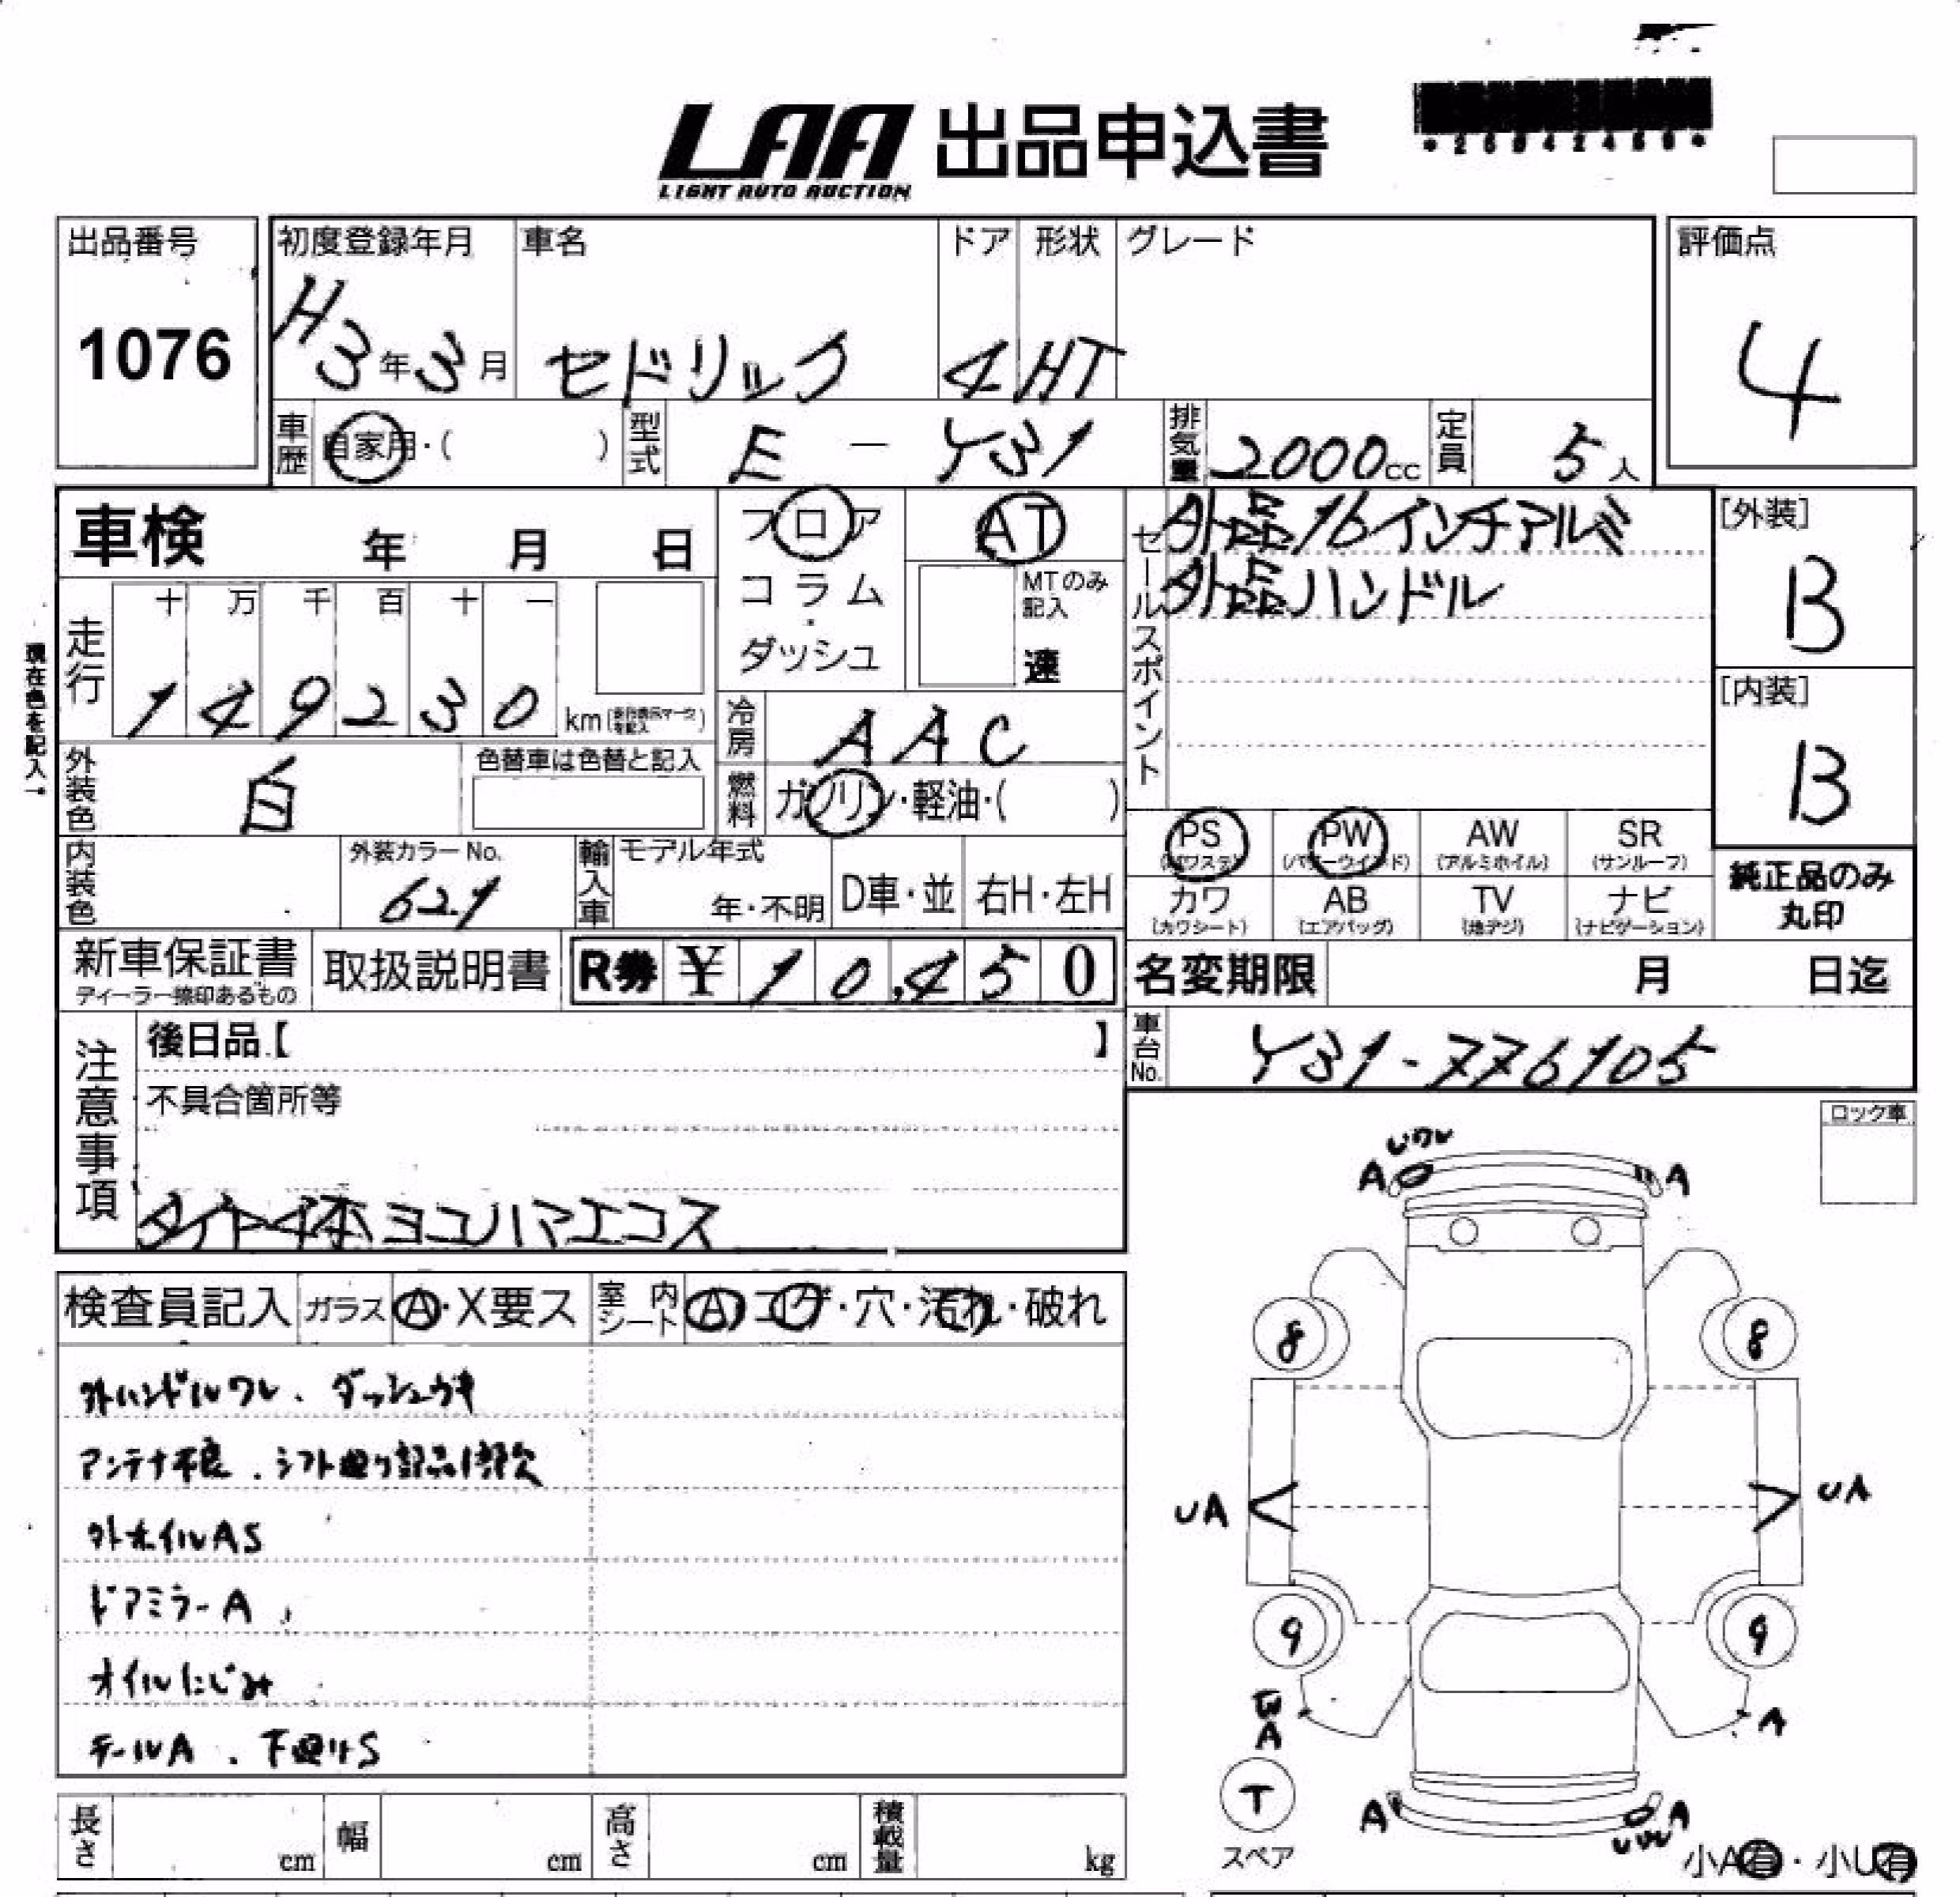 LAA 出品申込書
LIGHT AUTO AUCTION
出品番号
1076
初度登録年月
H3年3月
車名
セドリック
ドア
4
形状
HT
グレード
評価点
4
車歴 自家用・( )
型式 E-Y31
排気量 2000cc
定員 5人
車検 年 月 日
フロア
コラム・
ダッシュ
AT
MTのみ記入
速
セールスポイント
外品16インチアルミ
外品ハンドル
[外装]
B
[内装]
B
現在色を記入→
走行
十 万 千 百 十 一
1 4 9 2 3 0 km
冷房 AAC
外装色 白
色替車は色替と記入
燃料 ガソリン・軽油・( )
内装色
外装カラーNo.
621
輸入車
モデル年式
年・不明
D車・並
右H・左H
PS (パワステ)
PW (パワーウインド)
AW (アルミホイル)
SR (サンルーフ)
カワ (カワシート)
AB (エアバッグ)
TV (地デジ)
ナビ (ナビゲーション)
純正品のみ
丸印
新車保証書
ディーラー捺印あるもの
取扱説明書
R券 ¥ 1 0,4 5 0
名変期限 月 日迄
車台No. Y31-776105
注意事項
後日品【 】
不具合箇所等
タイヤ4本ヨコハマエコス
ロック車
検査員記入
ガラス A・X要ス
室内シート A・コゲ・穴・汚れ・破れ
外ハンドルワレ、ダッシュウキ
アンテナ不良、シフト廻り部品1部欠
外ホイルAS
ドアミラーA
オイルにじみ
テールA、下廻りS
A
A
8
8
UA
UA
9
9
A
A
T
スペア
A
A
小A有・小U有
長さ cm
幅 cm
高さ cm
積載量 kg